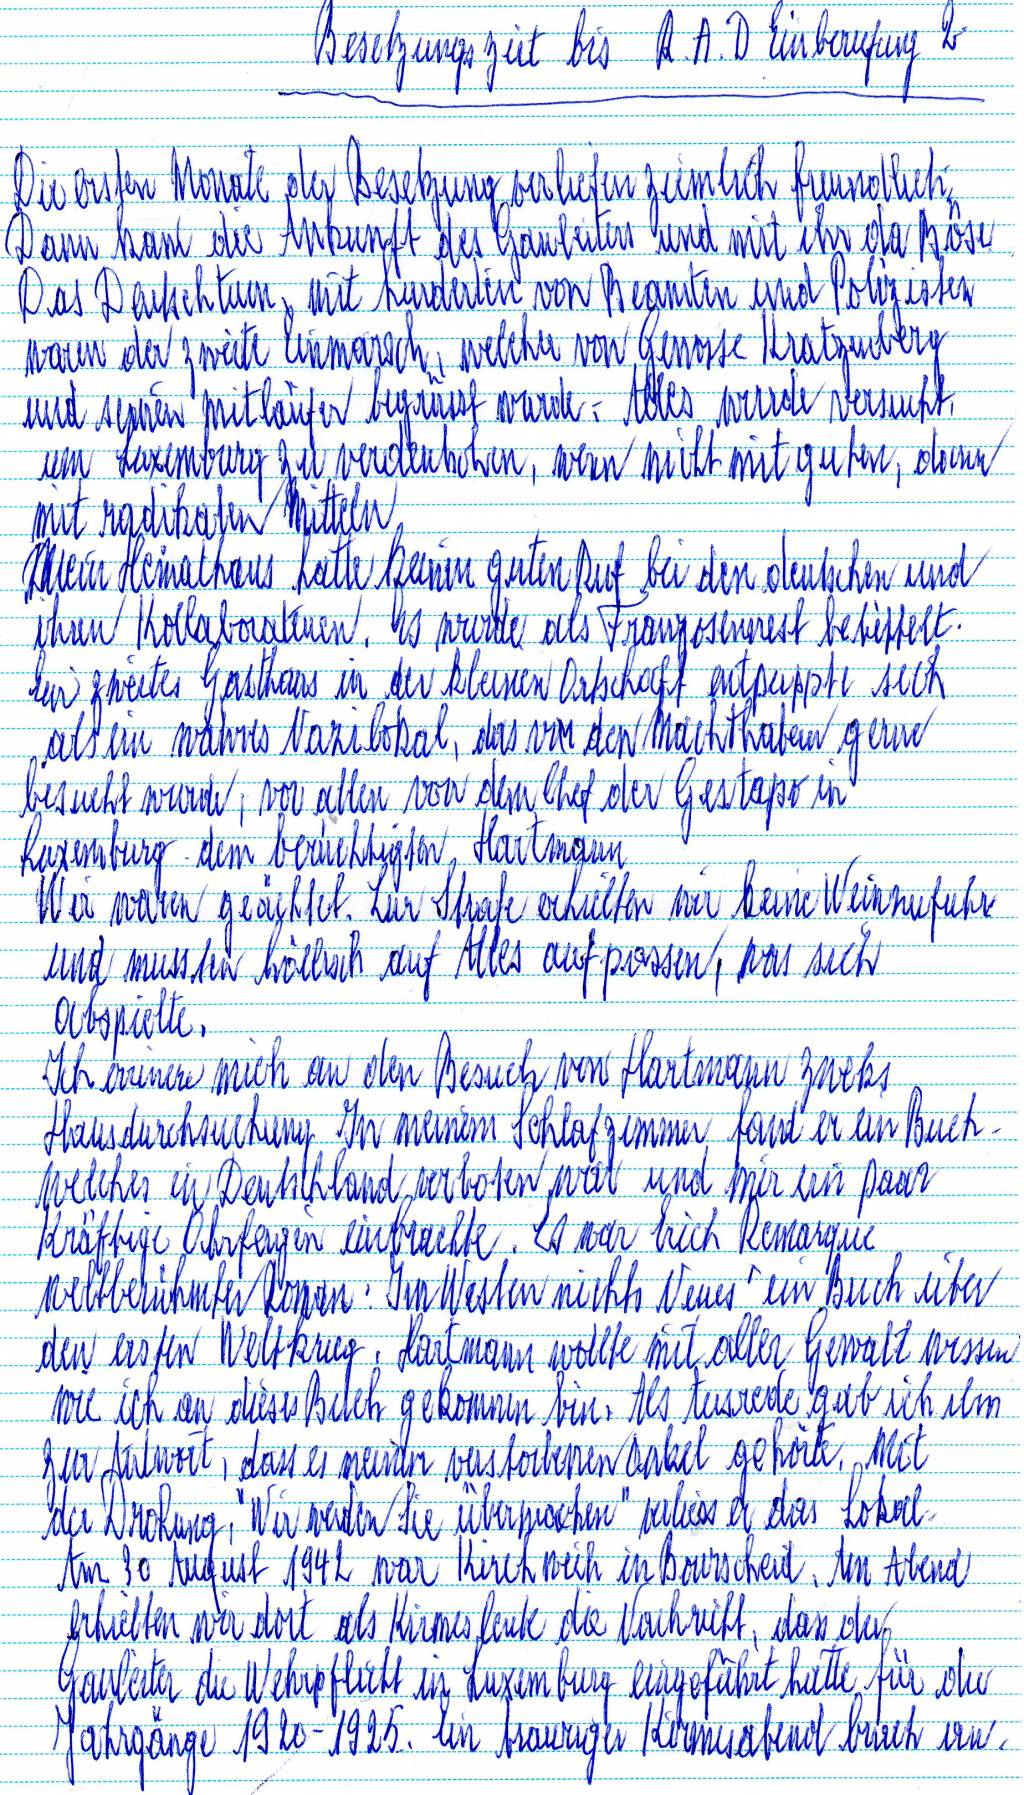 Besetzungszeit bis R.A.D Einberufung 2
Die ersten Monate der Besetzung verliefen ziemlich freundlich.
Dann kam die Ankunft des Gauleiters und mit ihr da Böse
Das Deutschtum, mit hunderten von Beamten und Polizisten
waren der zweite Einmarsch, welcher von Genosse Kratzenberg
und seinen Mitläufer begrüsst wurde. Alles wurde versucht,
um Luxemburg zu verdeutschen, wenn nicht mit guten, dann
mit radikalen Mitteln
Mein Heimathaus hatte keinen guten Ruf bei den deutschen und
ihren Kollaborateuren. Es wurde als Franzosennest betippelt.
Ein zweites Gasthaus in der kleinen Ortschaft entpuppte sich
als ein wahres Nazilokal, das von den Machthabern gerne
besucht wurde, vor allen von dem Chef der Gestapo in
Luxemburg dem berüchtigten Hartmann
Wir waren geächtet. Zur Strafe erhielten wir keine Weinzufuhr
und mussten höllisch auf Alles aufpassen, was sich
abspielte.
Ich erinere mich an den Besuch von Hartmann zweks
Hausdurchsuchung. In meinem Schlafzimmer fand er ein Buch
welches in Deutschland verboten war und mir ein paar
kräftige Ohrfeigen einbrachte. Es war Erich Remarque
weltberühmter Roman: Im Westen nichts Neues" ein Buch über
den ersten Weltkrieg. Hartmann wollte mit aller Gewalt wissen
wie ich an dieses Buch gekommen bin. Als Ausrede gab ich ihm
zur Antwort, dass es meinem verstorbenen Onkel gehörte. Mit
der Drohung, "Wir werden Sie überwachen" verliess er das Lokal.
Am 30 August 1942 war Kirchweih in Bourscheid. Am Abend
erhielten wir dort als Kirmesleute die Nachricht, dass der
Gauleiter die Wehrpflicht in Luxemburg eingeführt hatte für die
Jahrgänge 1920-1925. Ein trauriger Kirmesabend brach an.